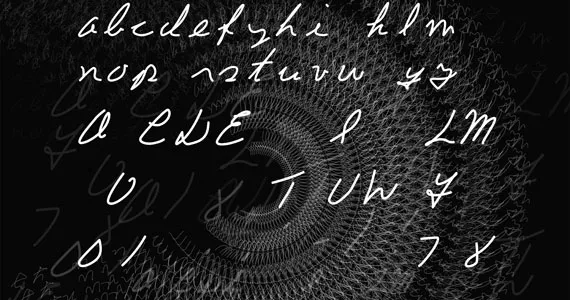 abcdefghi klm
nop rstuvw yz
A CDE I LM
O T UW Y
0 1 7 8